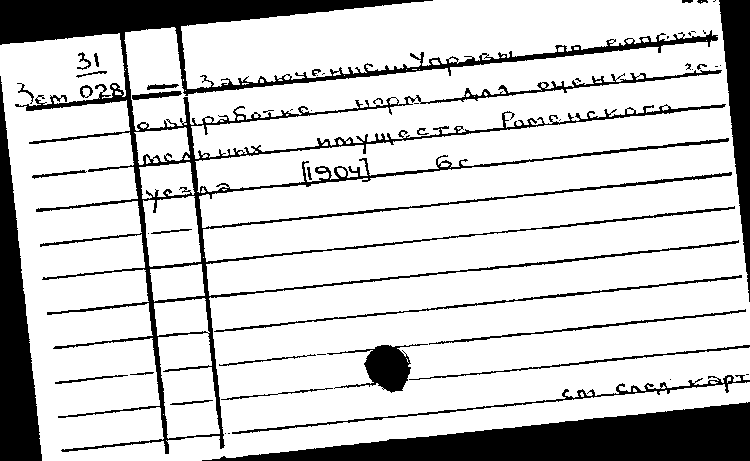 31
Зем 028 — Заключение Управы по вопросу
о выработке норм для оценки зе-
мельных имуществ Роменского
уезда [1904] 6с
см след карт